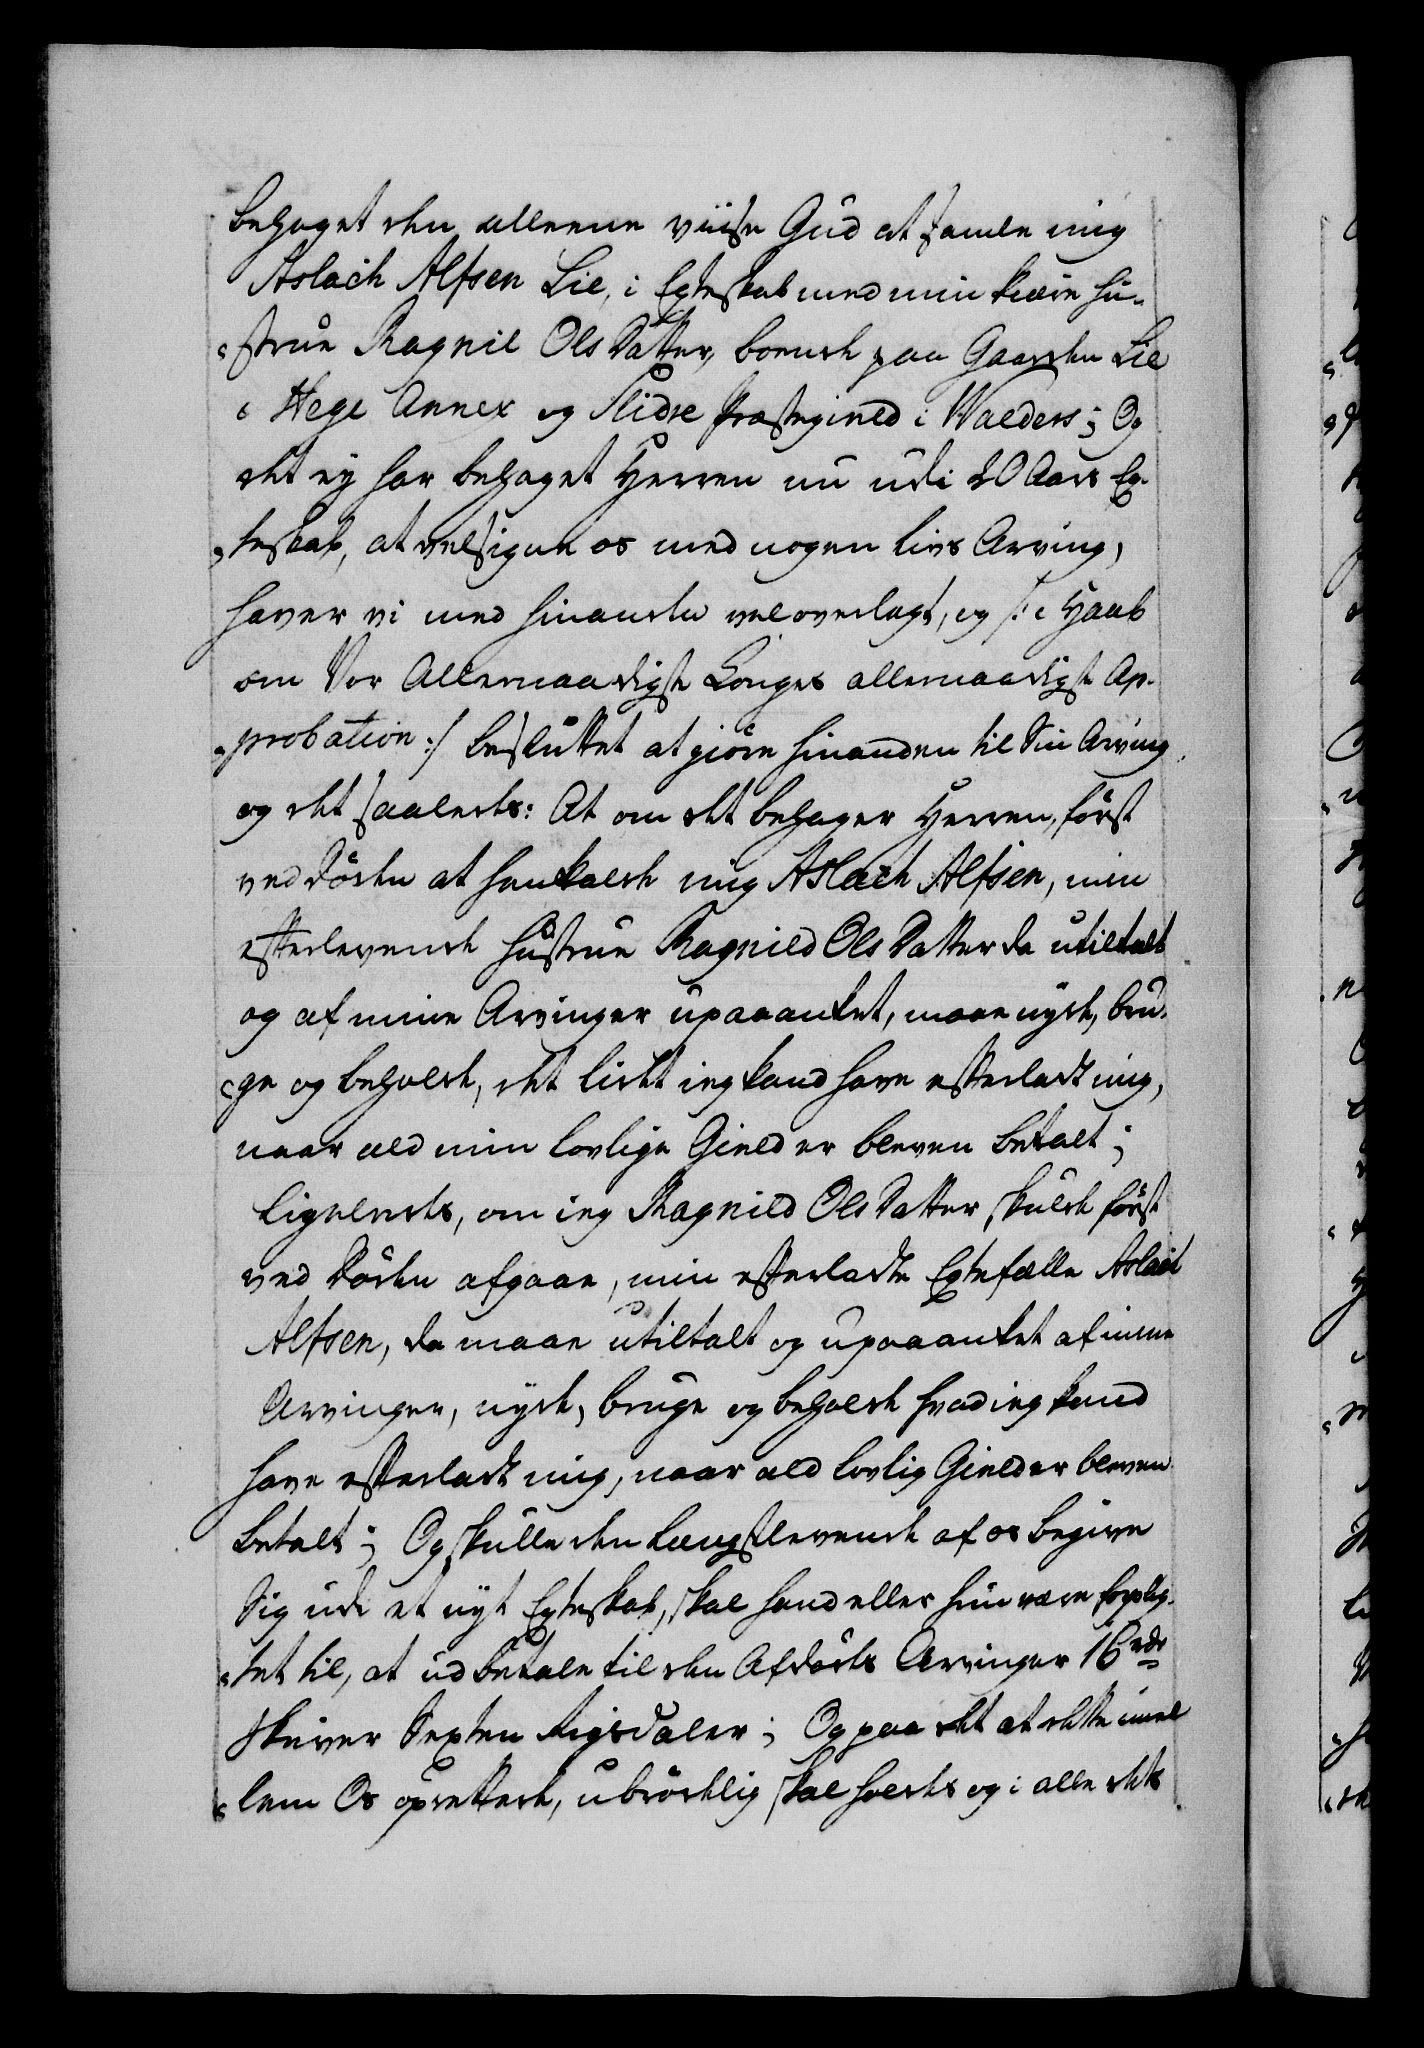 behaget den alleene viise Gud at samle mig
Aslach Alfsen Lie, i Egteskab med min kiære Hu-
strue Ragnil Ols Datter, boende paa Gaarden Lie
i Hege Annex og Slidre Præstegield i Walders; Og
det ey har behaget Herren nu udi 20 Aars Eg-
teskab, at velsigne os med nogen livs Arving,
haver vi med hinanden vel overlagt, og /: i Haab
om Vor Allernaadigste Konges allernaadigste Ap-
probation :/ besluttet at giöre hinanden til Sin Arving
og det saaledes: At om det behager Herren, först
ved Döden at henkalde mig Aslach Alfsen, min
efterlevende Hustrue Ragnild Ols Datter da utiltalt
og af mine Arvinger upaaanket, maae nyde, bru-
ge og beholde, det lidet ieg kand have efterladt mig,
naar ald min lovlige Gield er bleven betalt;
Ligeledes, om ieg Ragnild Ols Datter skulde först
ved Döden afgaae, min efterladte Egtefælle Aslach
Alfsen, da maae utiltalt og upaaanket af mine
Arvinger, nyde, bruge og beholde hvad ieg kand
have efterladt mig, naar ald lovlig Gield er bleven
betalt; Og skulle den længstlevende af os begive
Sig udi et nyt Egteskab, skal hand eller hun være forplig-
tet til, at udbetale til den Afdödes Arvinger 16 rdr
skriver Sexten Rigsdaler; Og paa det at dette imel
lem Os oprettede, ubrödelig skal holdes og i alle dets